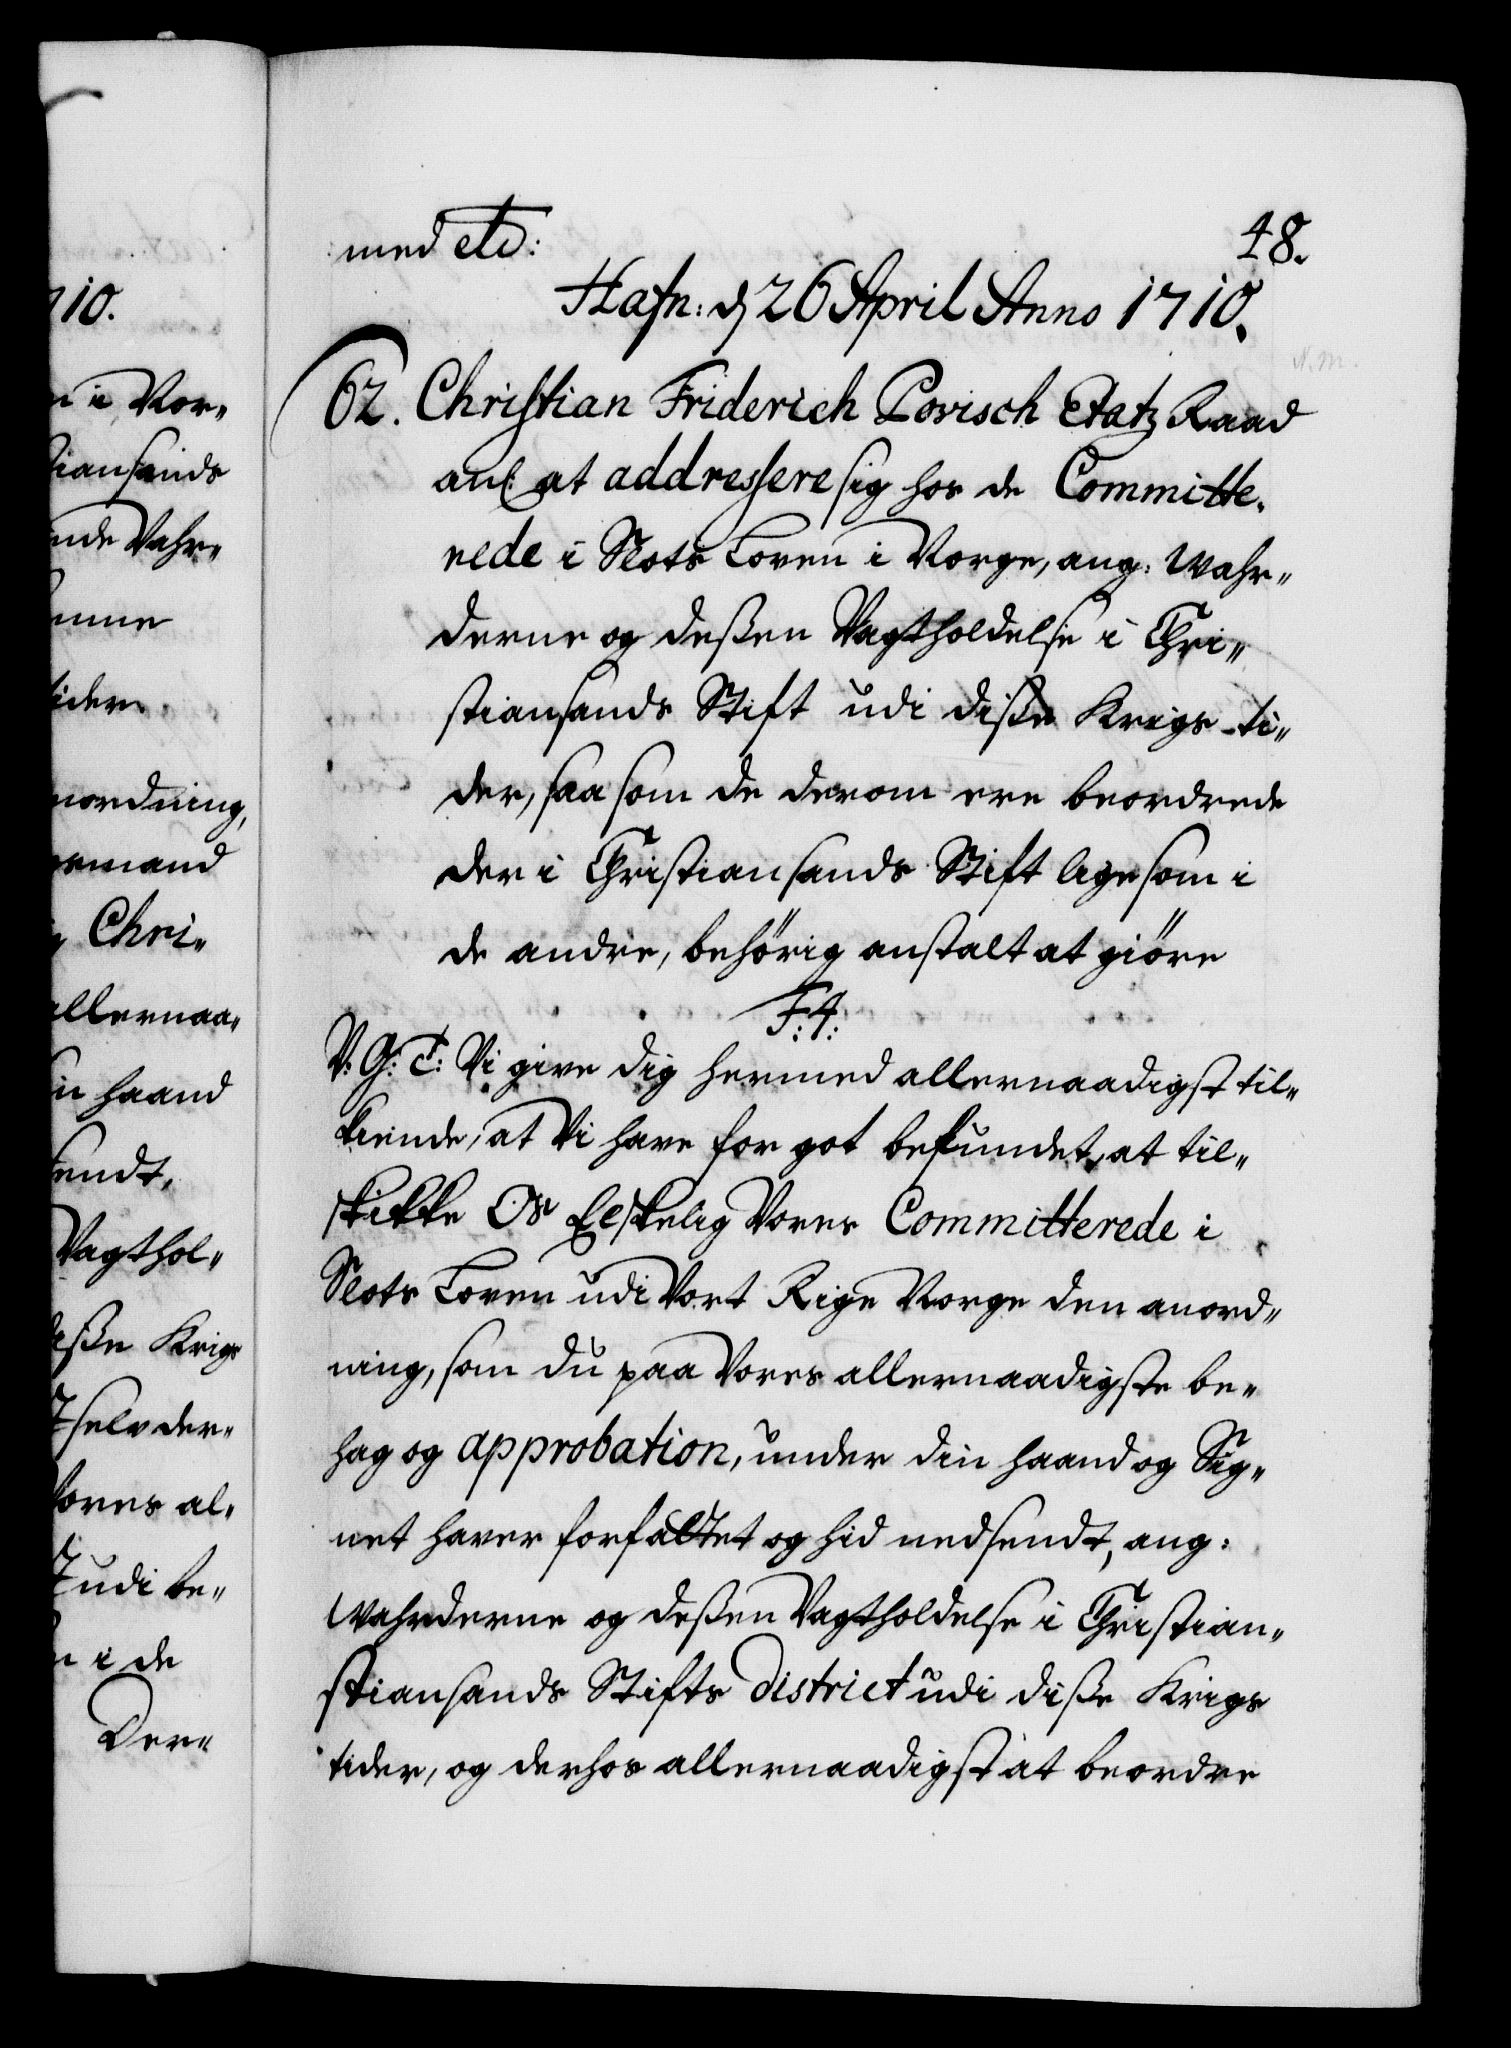 10.
i Nor„
iansands
nde Vahr„
mme
tider
nordning,
ermand
Chri„
allernaa„
in haand
sendt,
Vagthol„
diße Krigs
selv der„
Vores al„
udi be„
i de
Der„
med etc:
48.
Hafn: d 26 April Anno 1710.
N.M.
62. Christian Friderich Povisch Etatz Raad
anl: at addressere sig hos de Committe„
rede i Slots Loven i Norge, ang: Wahr„
derne og deßen Vagtholdelse i Chri„
stiansands Stift udi diße Krigs-ti„
der, saasom de derom ere beordrede
der i Christiansands Stift ligesom i
de andre, behörig anstalt at giöre
F:4:
V: G: T: Vi give dig hermed allernaadigst til„
kiende, at Vi have for got befundet, at til„
skikke Os Elskelig Vores Committerede i
Slots Loven udi Vort Rige Norge den anord„
ning, som du paa Vores allernaadigste be„
hag og approbation, under din haand og Sig„
net haver forfattet og hid nedsendt, ang:
Wahrderne og deßen Vagtholdelse i Christian„
stiansands Stifts District udi diße Krigs
tider, og derhos allernaadigst at beordre